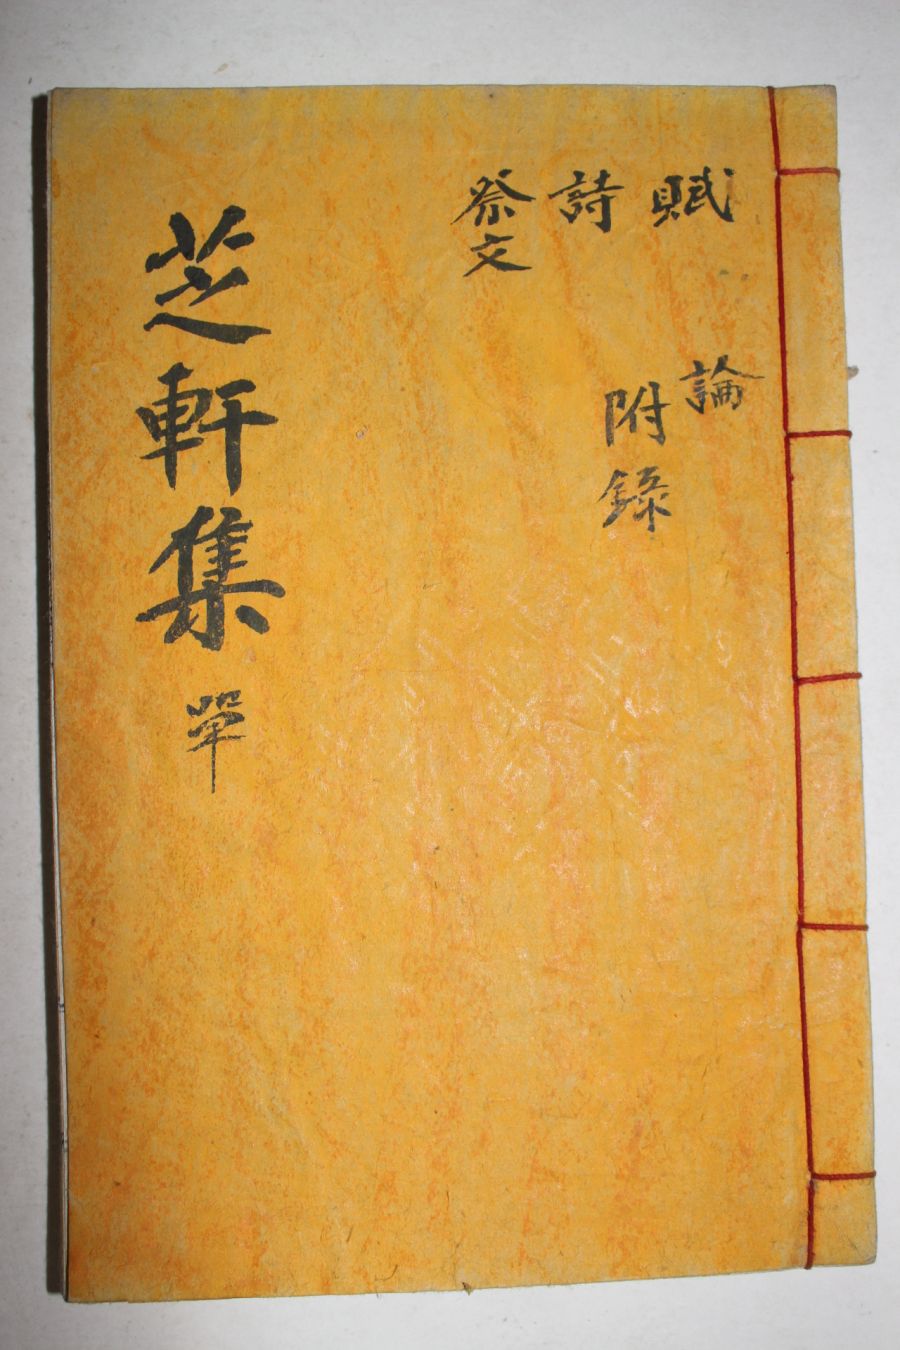 賦
詩
祭文
論
附錄
芝軒集 單